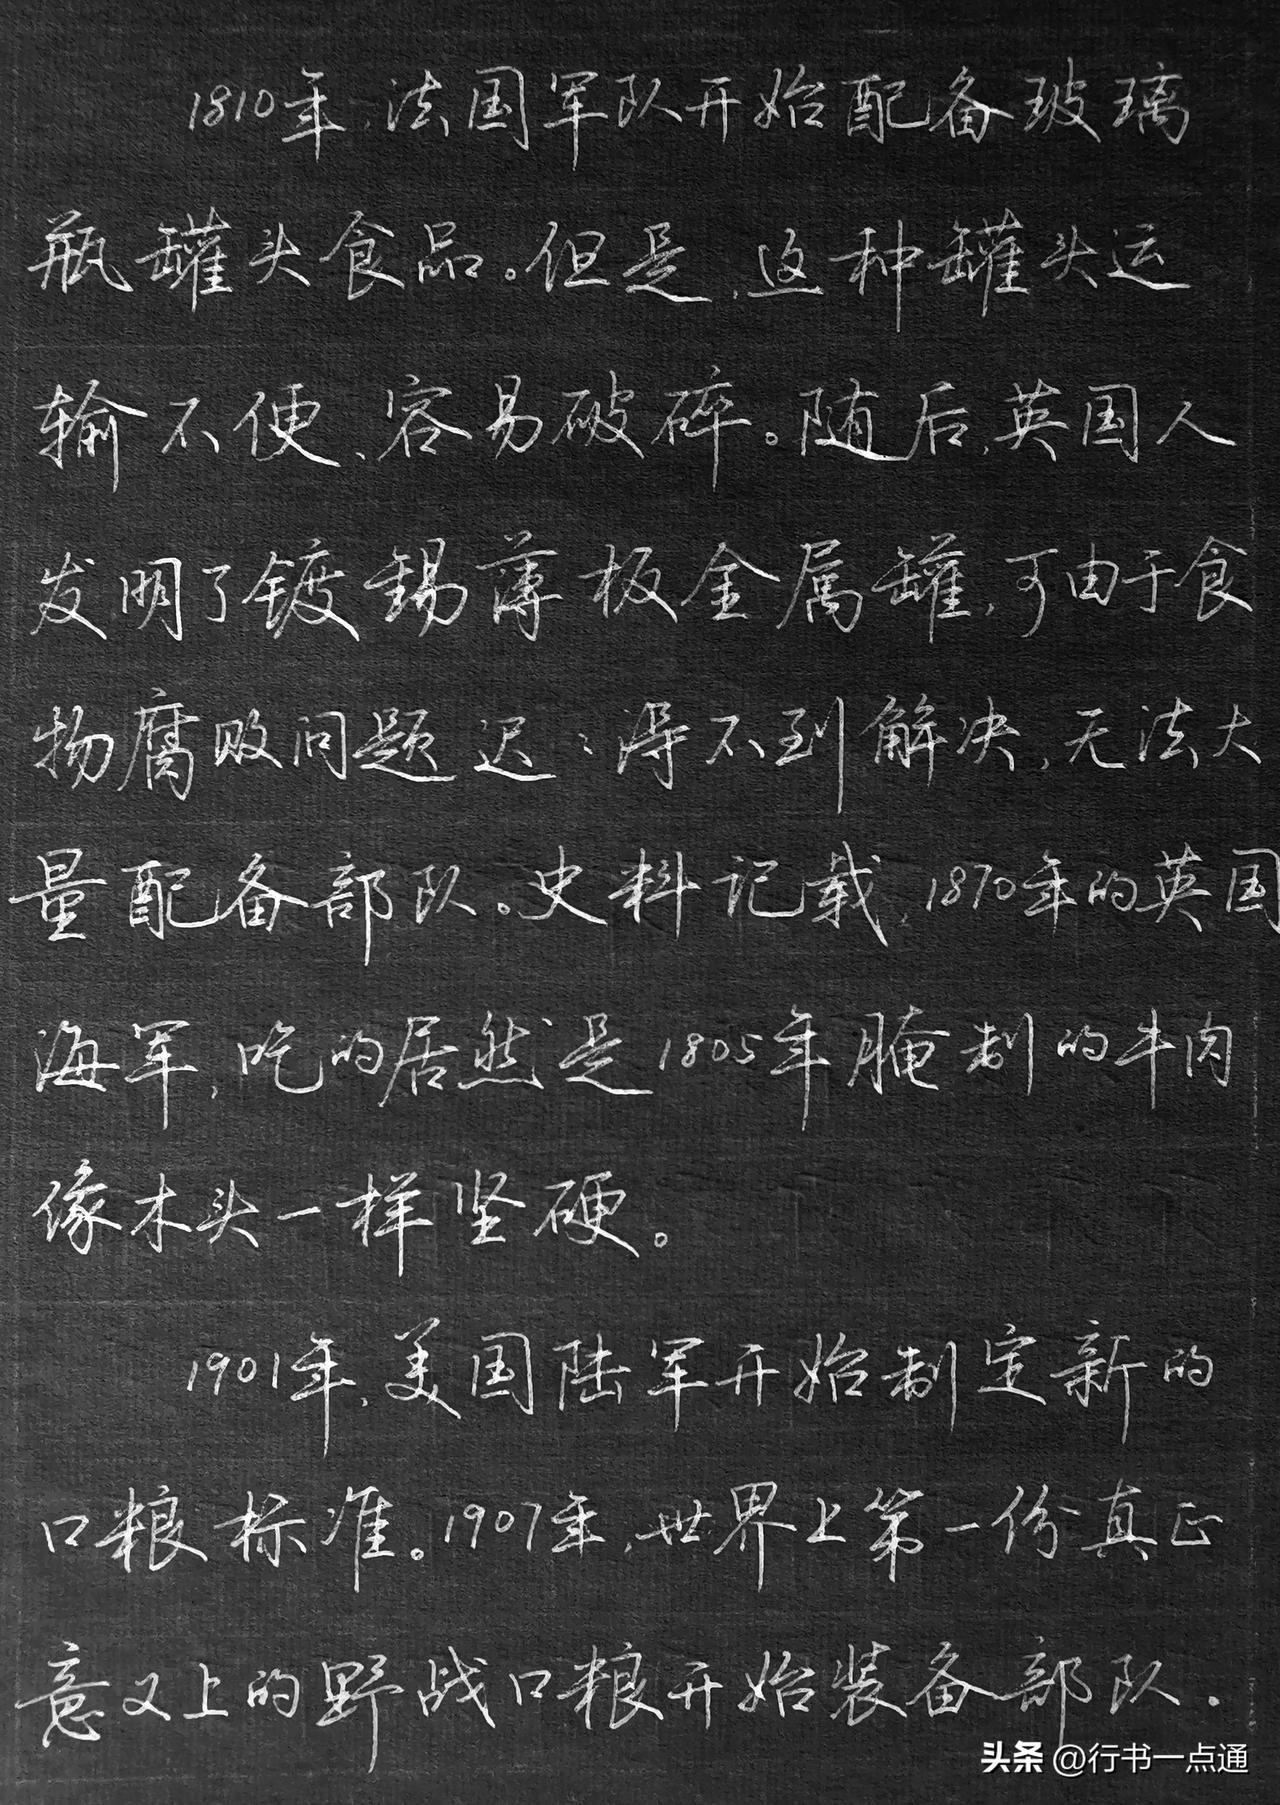 1810年,法国军队开始配备玻璃
瓶罐头食品。但是,这种罐头运
输不便、容易破碎。随后,英国人
发明了镀锡薄板金属罐,可由于食
物腐败问题迟:得不到解决,无法大
量配备部队。史料记载,1870年的英国
海军,吃的居然是1805年腌制的牛肉
像木头一样坚硬。
1901年,美国陆军开始制定新的
口粮标准。1907年,世界上第一份真正
意义上的野战口粮开始装备部队.
头条 @行书一点通